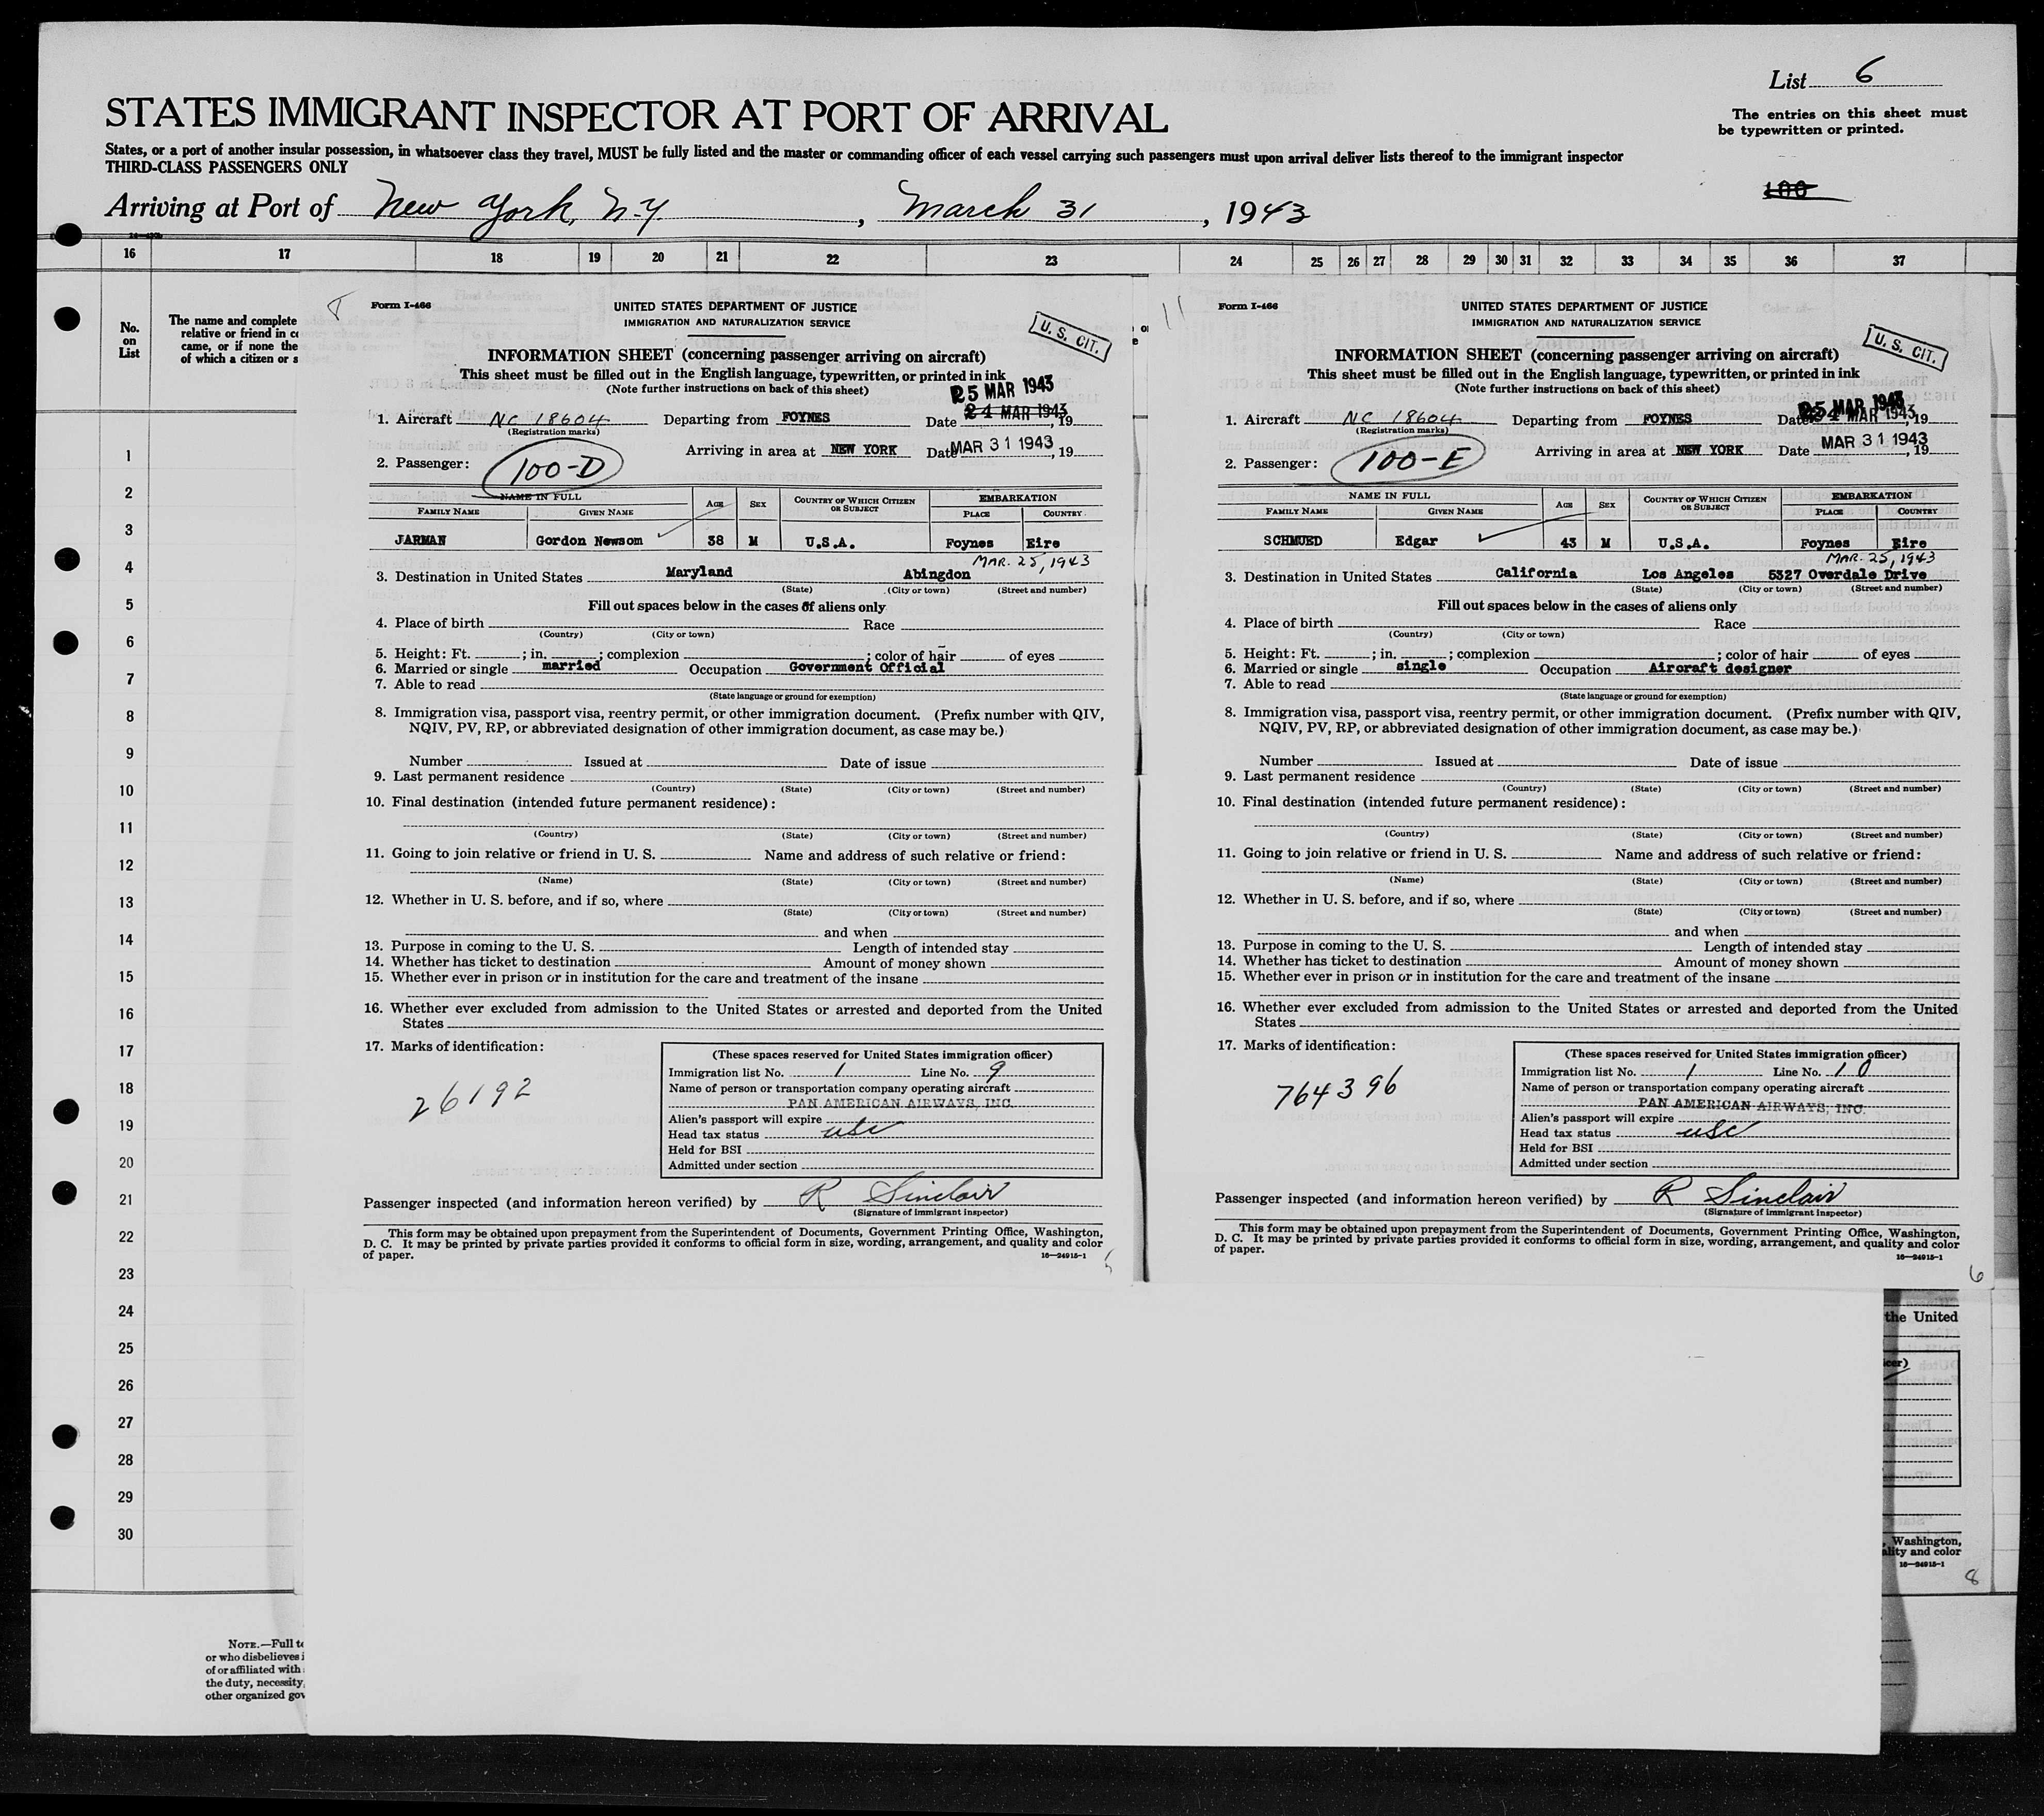 List 6
STATES IMMIGRANT INSPECTOR AT PORT OF ARRIVAL
The entries on this sheet must
be typewritten or printed.
States, or a port of another insular possession, in whatsoever class they travel, MUST be fully listed and the master or commanding officer of each vessel carrying such passengers must upon arrival deliver lists thereof to the immigrant inspector
THIRD-CLASS PASSENGERS ONLY
100
Arriving at Port of New York, N.Y. , March 31 , 1943
16 17 18 19 20 21 22 23 24 25 26 27 28 29 30 31 32 33 34 35 36 37
No.
on
List
The name and complete
relative or friend in
came, or if none the
of which a citizen or s
1
2
3
4
5
6
7
8
9
10
11
12
13
14
15
16
17
18
19
20
21
22
23
24
25
26
27
28
29
30
NOTE.—Full
or who disbelieves
of or affiliated with
the duty, necessity,
other organized
Form I-466
UNITED STATES DEPARTMENT OF JUSTICE
IMMIGRATION AND NATURALIZATION SERVICE
U. S. CIT.
INFORMATION SHEET (concerning passenger arriving on aircraft)
This sheet must be filled out in the English language, typewritten, or printed in ink
(Note further instructions on back of this sheet)
25 MAR 1943
24 MAR 1943
1. Aircraft NC 18604 Departing from FOYNES Date , 19
(Registration marks)
Arriving in area at NEW YORK Date MAR 31 1943 , 19
2. Passenger: 100-D
NAME IN FULL AGE SEX COUNTRY OF WHICH CITIZEN OR SUBJECT EMBARKATION
FAMILY NAME GIVEN NAME PLACE COUNTRY
JARMAN Gordon Newsom 38 M U.S.A. Foynes Eire
MAR. 25, 1943
3. Destination in United States Maryland Abingdon
(State) (City or town) (Street and number)
Fill out spaces below in the cases of aliens only
4. Place of birth Race
(Country) (City or town)
5. Height: Ft. ; in. ; complexion ; color of hair of eyes
6. Married or single married Occupation Government Official
7. Able to read
(State language or ground for exemption)
8. Immigration visa, passport visa, reentry permit, or other immigration document. (Prefix number with QIV,
NQIV, PV, RP, or abbreviated designation of other immigration document, as case may be.)
Number Issued at Date of issue
9. Last permanent residence
(Country) (State) (City or town) (Street and number)
10. Final destination (intended future permanent residence):
(Country) (State) (City or town) (Street and number)
11. Going to join relative or friend in U. S. Name and address of such relative or friend:
(Name) (State) (City or town) (Street and number)
12. Whether in U. S. before, and if so, where
(State) (City or town) (Street and number)
and when
13. Purpose in coming to the U. S. Length of intended stay
14. Whether has ticket to destination Amount of money shown
15. Whether ever in prison or in institution for the care and treatment of the insane
16. Whether ever excluded from admission to the United States or arrested and deported from the United
States
17. Marks of identification:
26192
(These spaces reserved for United States immigration officer)
Immigration list No. 1 Line No. 9
Name of person or transportation company operating aircraft
PAN AMERICAN AIRWAYS, INC.
Alien's passport will expire
Head tax status usc
Held for BSI
Admitted under section
Passenger inspected (and information hereon verified) by R Sinclair
(Signature of immigrant inspector)
This form may be obtained upon prepayment from the Superintendent of Documents, Government Printing Office, Washington,
D. C. It may be printed by private parties provided it conforms to official form in size, wording, arrangement, and quality and color
of paper. 16—24915-1
11
Form I-466
UNITED STATES DEPARTMENT OF JUSTICE
IMMIGRATION AND NATURALIZATION SERVICE
U. S. CIT.
INFORMATION SHEET (concerning passenger arriving on aircraft)
This sheet must be filled out in the English language, typewritten, or printed in ink
(Note further instructions on back of this sheet)
25 MAR 1943
24 MAR 1943
1. Aircraft NC 18604 Departing from FOYNES Date , 19
(Registration marks)
Arriving in area at NEW YORK Date MAR 31 1943 , 19
2. Passenger: 100-E
NAME IN FULL AGE SEX COUNTRY OF WHICH CITIZEN OR SUBJECT EMBARKATION
FAMILY NAME GIVEN NAME PLACE COUNTRY
SCHMUED Edgar 43 M U.S.A. Foynes Eire
MAR. 25, 1943
3. Destination in United States California Los Angeles 5327 Overdale Drive
(State) (City or town) (Street and number)
Fill out spaces below in the cases of aliens only
4. Place of birth Race
(Country) (City or town)
5. Height: Ft. ; in. ; complexion ; color of hair of eyes
6. Married or single single Occupation Aircraft designer
7. Able to read
(State language or ground for exemption)
8. Immigration visa, passport visa, reentry permit, or other immigration document. (Prefix number with QIV,
NQIV, PV, RP, or abbreviated designation of other immigration document, as case may be.)
Number Issued at Date of issue
9. Last permanent residence
(Country) (State) (City or town) (Street and number)
10. Final destination (intended future permanent residence):
(Country) (State) (City or town) (Street and number)
11. Going to join relative or friend in U. S. Name and address of such relative or friend:
(Name) (State) (City or town) (Street and number)
12. Whether in U. S. before, and if so, where
(State) (City or town) (Street and number)
and when
13. Purpose in coming to the U. S. Length of intended stay
14. Whether has ticket to destination Amount of money shown
15. Whether ever in prison or in institution for the care and treatment of the insane
16. Whether ever excluded from admission to the United States or arrested and deported from the United
States
17. Marks of identification:
764396
(These spaces reserved for United States immigration officer)
Immigration list No. 1 Line No. 10
Name of person or transportation company operating aircraft
PAN AMERICAN AIRWAYS, INC.
Alien's passport will expire
Head tax status usc
Held for BSI
Admitted under section
Passenger inspected (and information hereon verified) by R Sinclair
(Signature of immigrant inspector)
This form may be obtained upon prepayment from the Superintendent of Documents, Government Printing Office, Washington,
D. C. It may be printed by private parties provided it conforms to official form in size, wording, arrangement, and quality and color
of paper. 16—24915-1
6
the United
Washington,
ality and color
16—24915-1
8